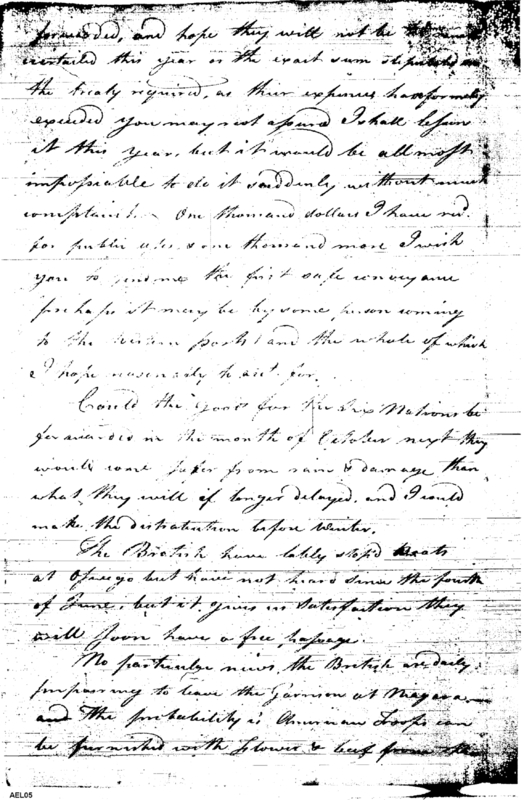 forwarded, and hope they will not be
curtailed this year as the exact sum stipulated
the treaty required, as their expences has formerly
exceeded you may rest assured I shall lessen
it this year, but it would be all most
impossiable to do it suddenly without much
complaint. One thousand dollars I have red.
for public uses & one thousand more I wish
you to send me the first safe conveyance
perhaps it may be by some person coming
to the western posts and the whole of which
I hope to act for.
Could the goods for the Six Nations be
forwarded in the month of October next they
would come safer from rain & damage than
what they will if longer delayed, and I could
make the distrabution before Winter.
The Brotish have lately stop'd Boats
at Oswego but have not heard since the fourth
of June, but it gives us satisfaction they
will soon have a free passage.
No particular news, the British are daily
prepairing to leave the Garrison at Niagara
and the probability is American Troops can
be furnished with flower & beef from the
AEL05